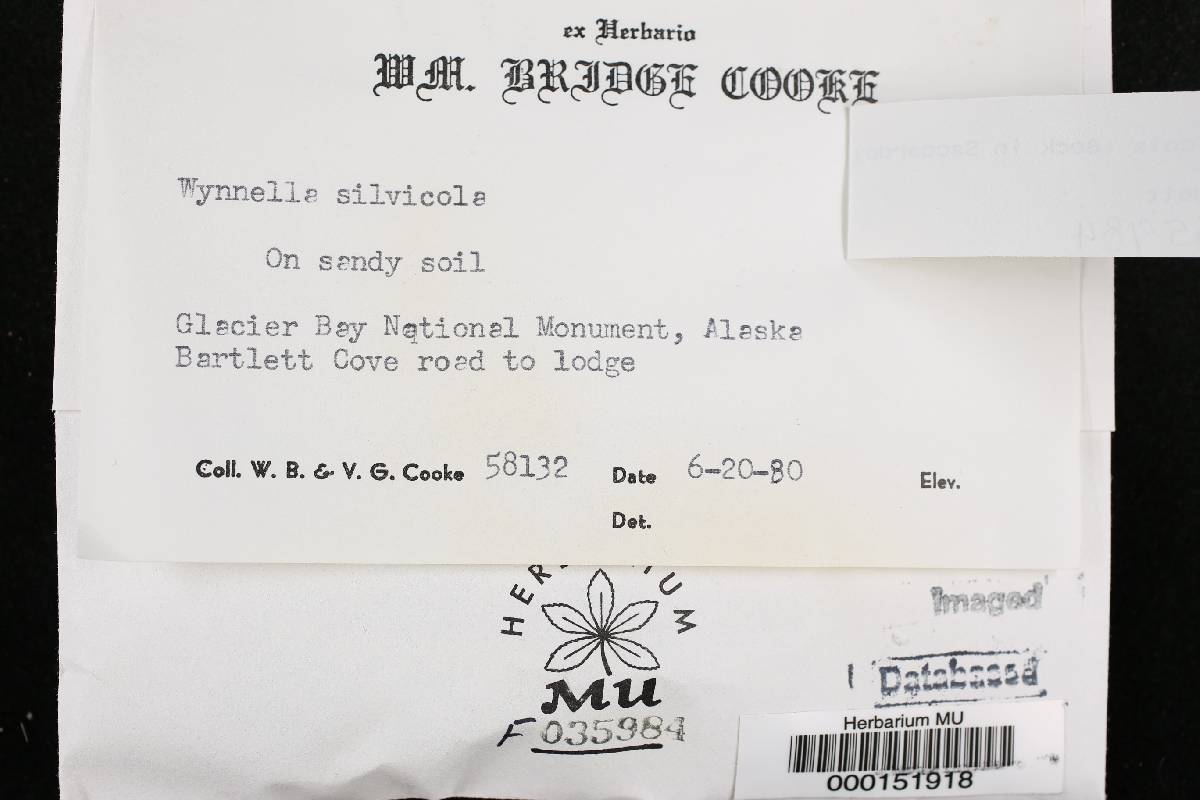 ex Herbario
WM. BRIDGE COOKE
Wynnella silvicola
On sandy soil
Glacier Bay National Monument, Alaska
Bartlett Cove road to lodge
Coll. W. B. & V. G. Cooke 58132 Date 6-20-80 Elev.
Det.
MU
F 035984
Imaged
Databased
Herbarium MU
000151918